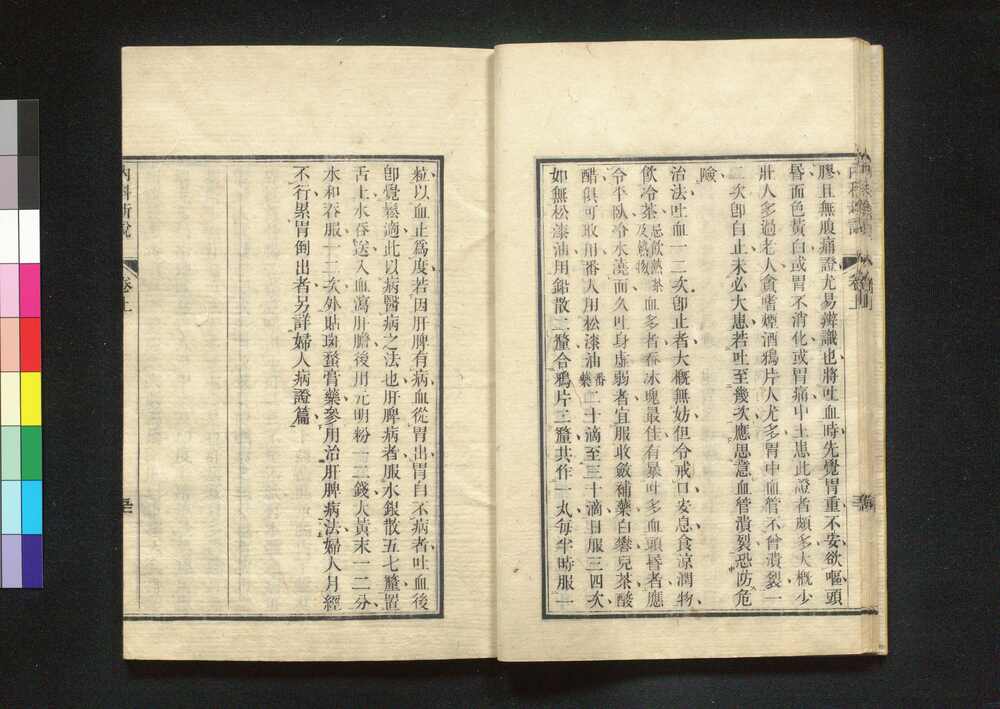 膠且無腹痛證尤易辨識也將吐血時先覺胃重不安欲嘔頭
唇面色黃白或胃不消化或胃痛中土患此證者頗多大槪少
壯人多過老人貪嗜煙酒鴉片人尤多胃中血管不曾潰裂一
二次卽自止未必大患若吐至幾次應思意血管潰裂恐防危
險
治法吐血一二次卽止者大槪無妨但令戒口安息食涼潤物
飲冷茶忌飲熱茶及熱物血多者吞冰塊最佳有暴吐多血頭唇者應
令平臥冷水澆面久吐身虛弱者宜服收斂補藥白礬兒茶酸
醋俱可取用番人用松漆油番藥二十滴至三十滴日服三四次
如無松漆油用鉛散二釐合鴉片三釐共作一丸每半時服一
粒以血止爲度若因肝脾有病血從胃出胃自不病者吐血後
卽覺鬆適此以病醫病之法也肝脾病者服水銀散五七釐置
舌上水吞送入血瀉肝膽後用元明粉一二錢大黃末一二分
水和吞服一二次外貼斑蝥膏藥參用治肝脾病法婦人月經
不行累胃倒出者另詳婦人病證篇
內科新說
卷上